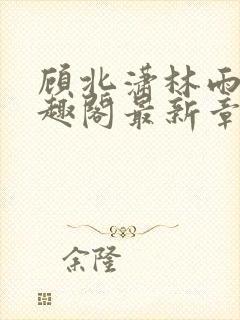 顾北潇林雨
趣阁最新章
余隆